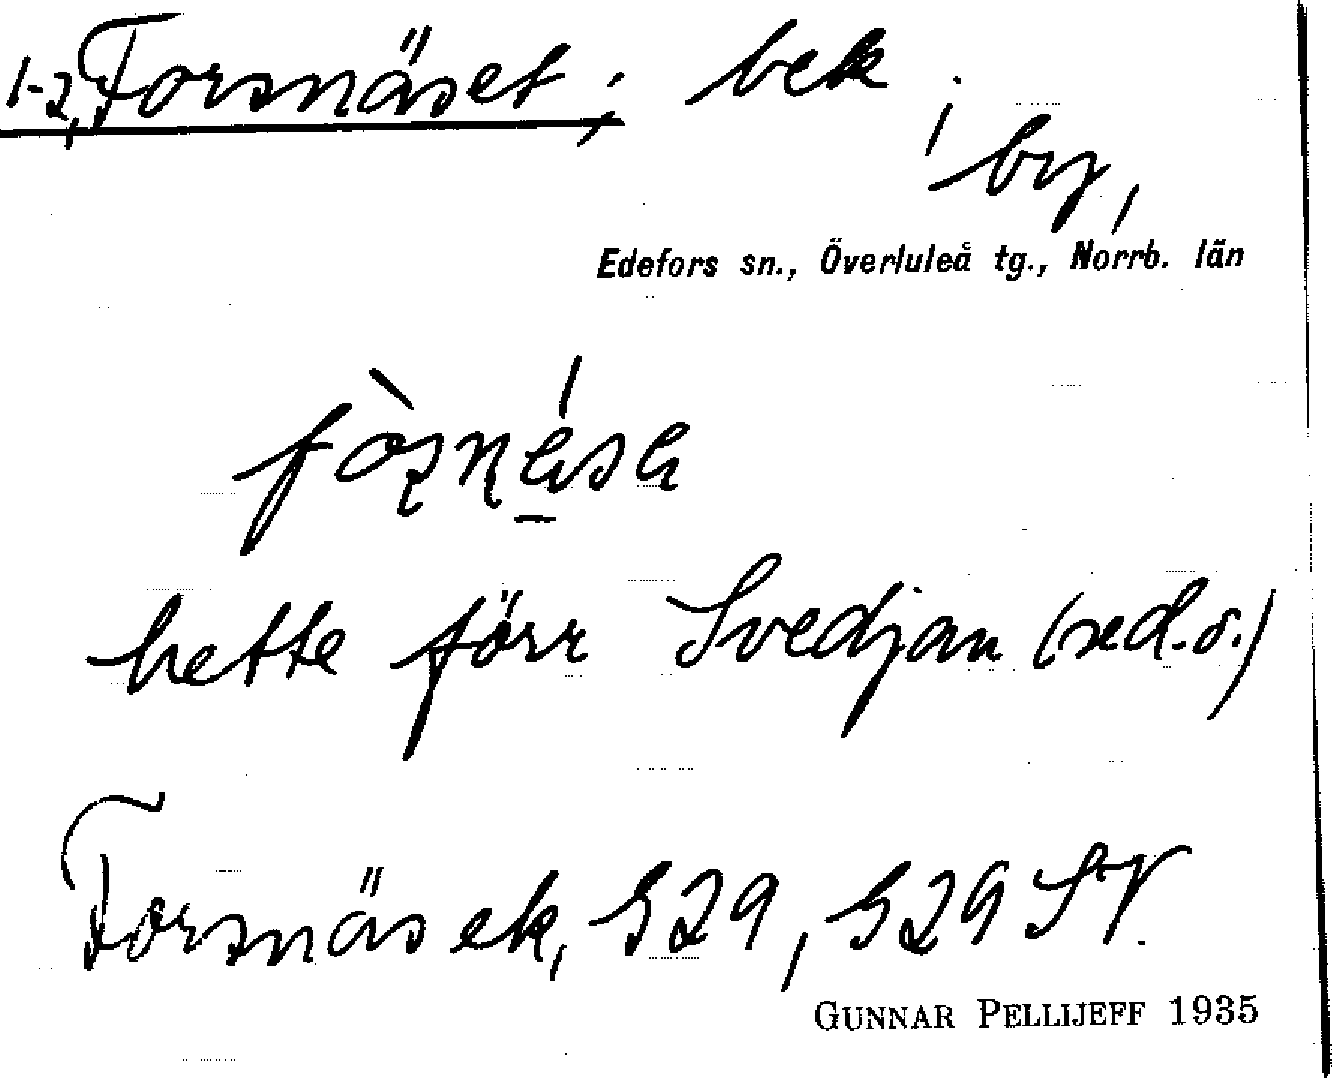 1-2, Forsnäset; bek.;
by,
Edefors sn., Överluleå tg., Norrb. län
hette förr Svedjan (sed.o.)
Forsnäs ek, G29, G29 SV.
GUNNAR PELLIJEFF 1935